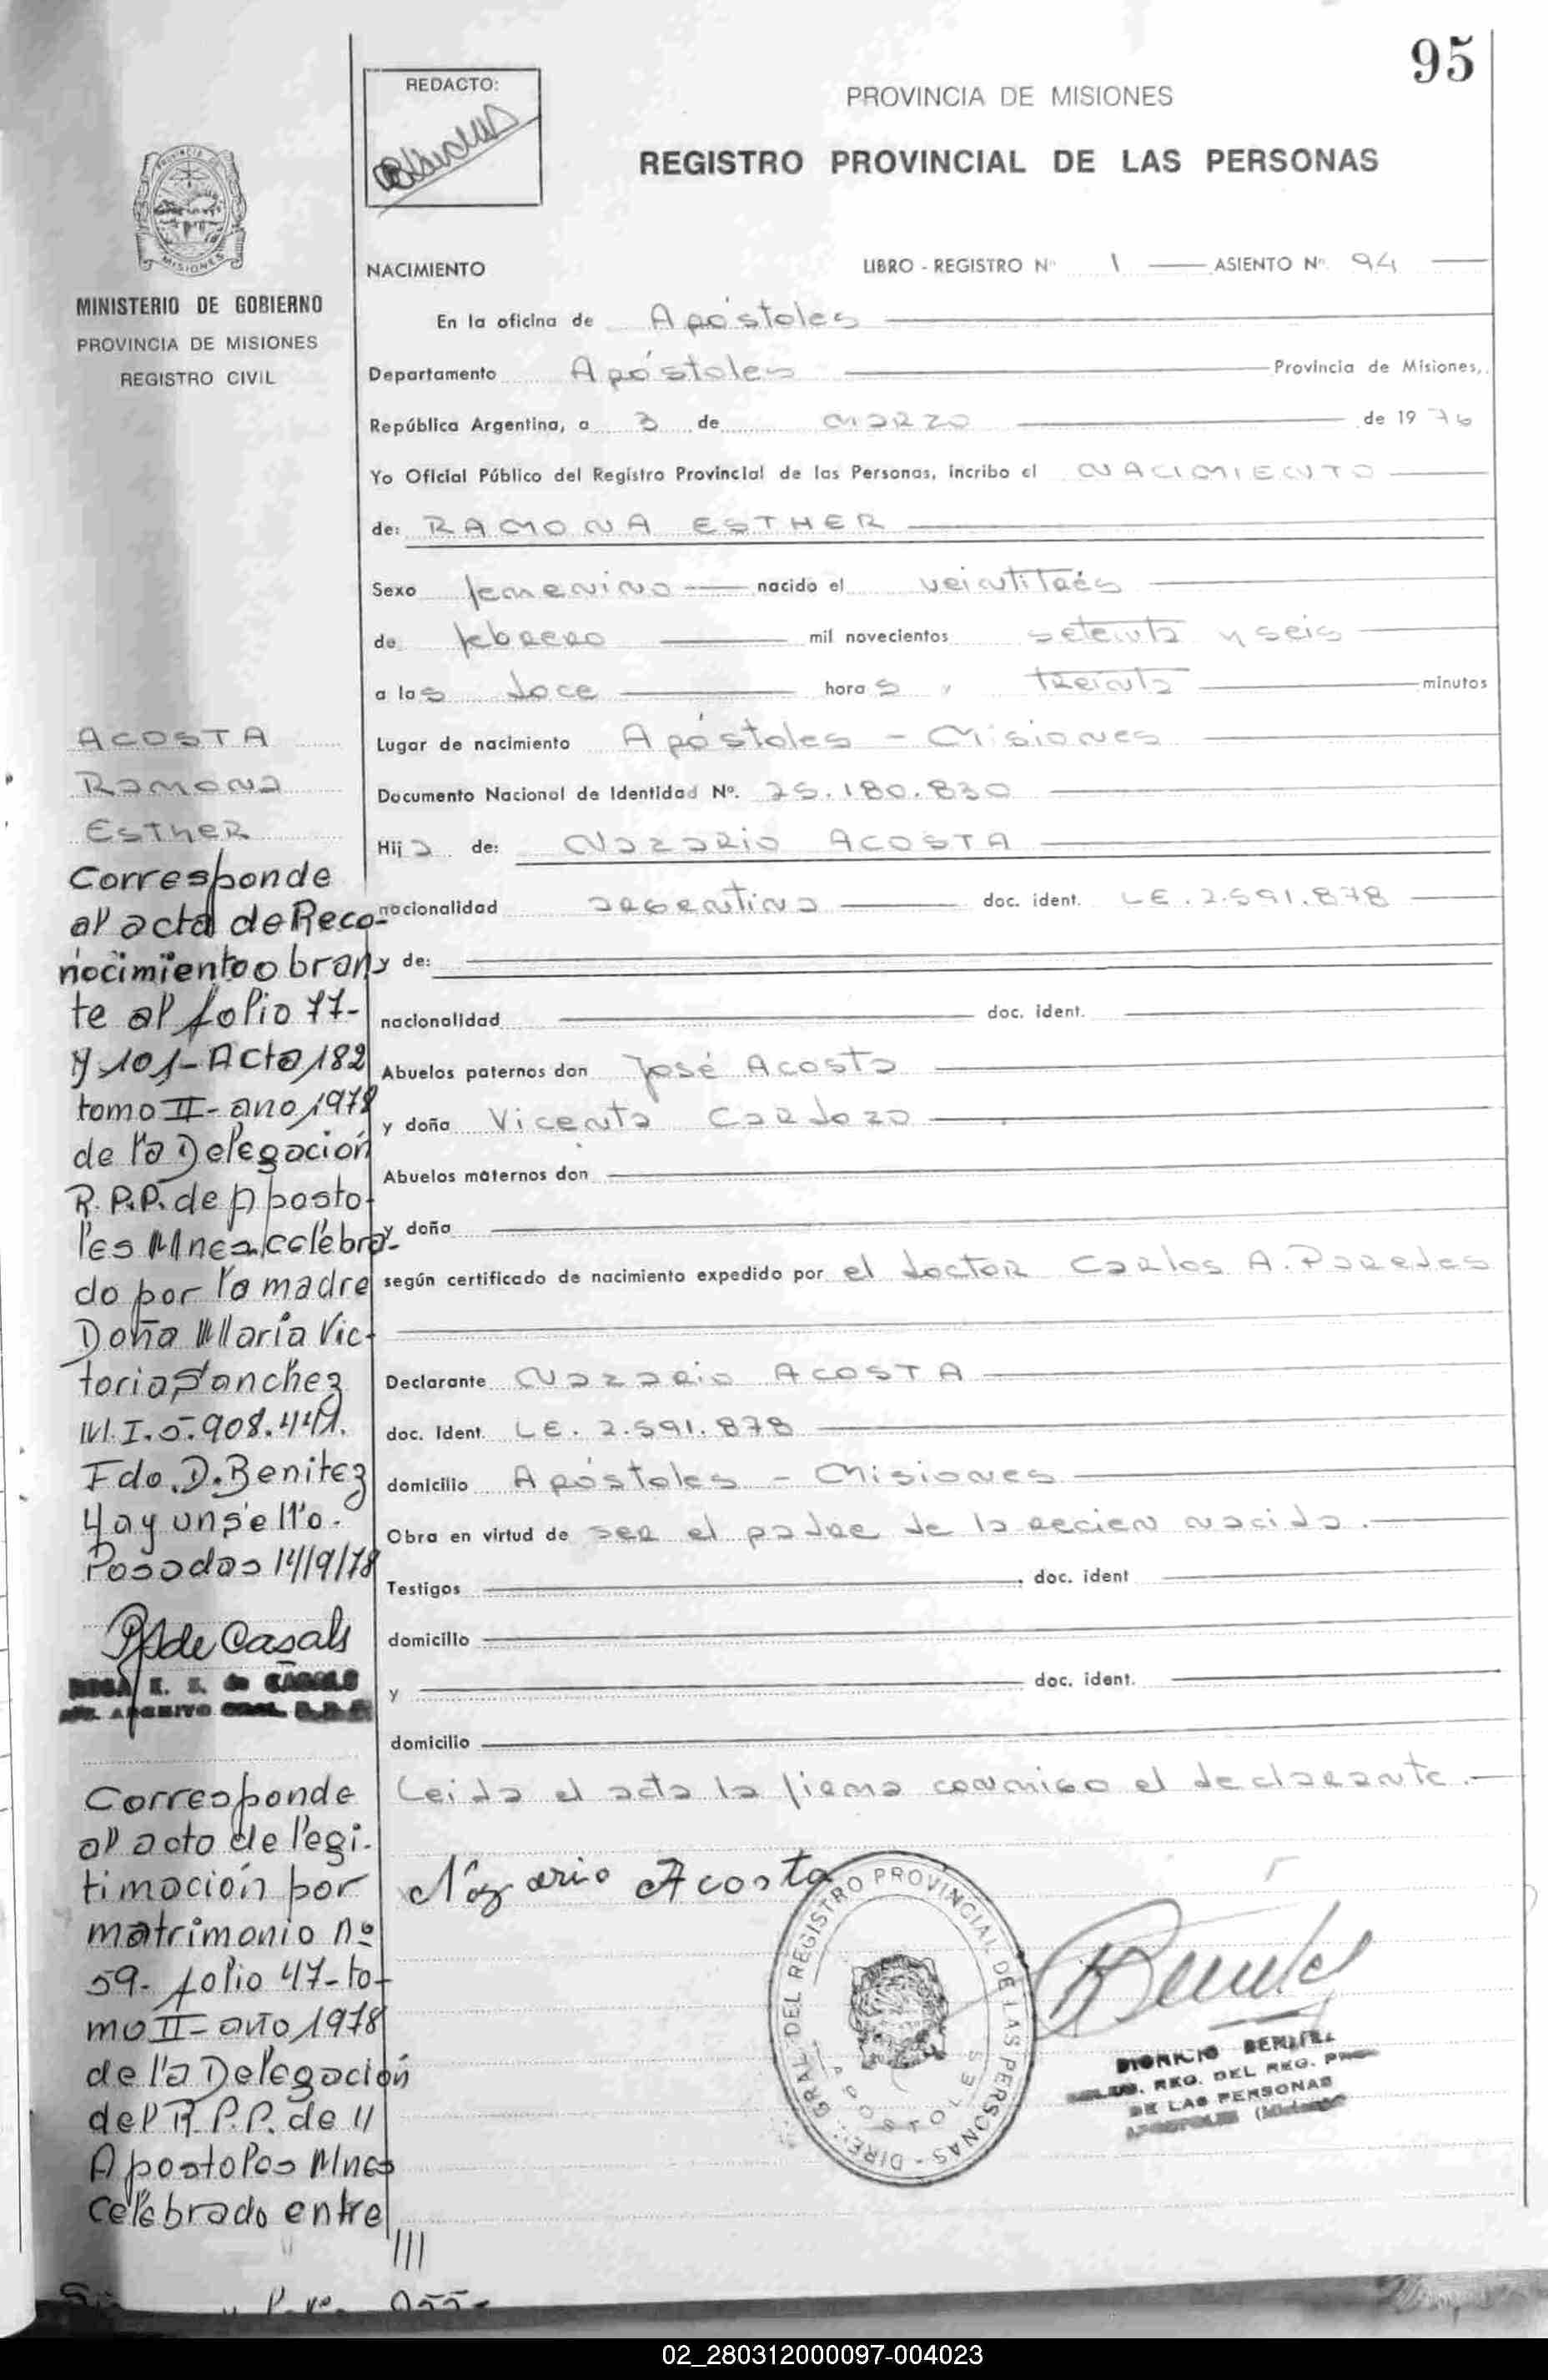 95
REDACTO:
PROVINCIA DE MISIONES
REGISTRO PROVINCIAL DE LAS PERSONAS
MISIONES
MINISTERIO DE GOBIERNO
PROVINCIA DE MISIONES
REGISTRO CIVIL
NACIMIENTO LIBRO - REGISTRO Nº 1 ASIENTO Nº 94
En la oficina de Apóstoles
Departamento Apóstoles Provincia de Misiones,
República Argentina, a 3 de marzo de 1976
Yo Oficial Público del Registro Provincial de las Personas, incribo el NACIMIENTO
de: RAMONA ESTHER
Sexo femenino nacido el veintitrés
de febrero mil novecientos setenta y seis
a las doce horas, treinta minutos
Lugar de nacimiento Apóstoles - Misiones
Documento Nacional de Identidad Nº. 25.180.830
Hija de: Nazario ACOSTA
nacionalidad argentina doc. ident. LE. 2.591.878
y de:
nacionalidad doc. ident.
Abuelos paternos don José Acosta
y doña Vicenta Cardozo
Abuelos maternos don
y doña
según certificado de nacimiento expedido por el doctor Carlos A. Paredes
Declarante Nazario ACOSTA
doc. Ident. LE. 2.591.878
domicilio Apóstoles - Misiones
Obra en virtud de ser el padre de la recien nacida.
Testigos doc. ident
domicilio
y doc. ident.
domicilio
Leida el acta la firma conmigo el declarante.
Nazario Acosta
DIREC. GRAL. DEL REGISTRO PROVINCIAL DE LAS PERSONAS -
APOSTOLES
DIONICIO BENITEZ
REG. DEL REG. PROV.
DE LAS PERSONAS
ACOSTA
Ramona
Esther
Corresponde
al acta de Reco-
nocimiento obran
te al folio 77-
y 101- Acta 182
tomo II - ano 1978
de la Delegación
R.P.P. de Aposto-
les Mnes. celebra-
do por la madre
Doña María Vic-
toria Sanchez
M.I. 5.908.441.
Fdo. D. Benitez
Hay un sello.
Posadas 14/9/78
R S de Casals
ROSA E. S. de CASALS
ARCHIVO GRAL. R.P.P.
Corresponde
al acto de legi-
timación por
matrimonio nº
59- folio 47- to-
mo II - año 1978
de la Delegación
del R.P.P. de //
Apostoles Mnes
celebrado entre
///
02_280312000097-004023